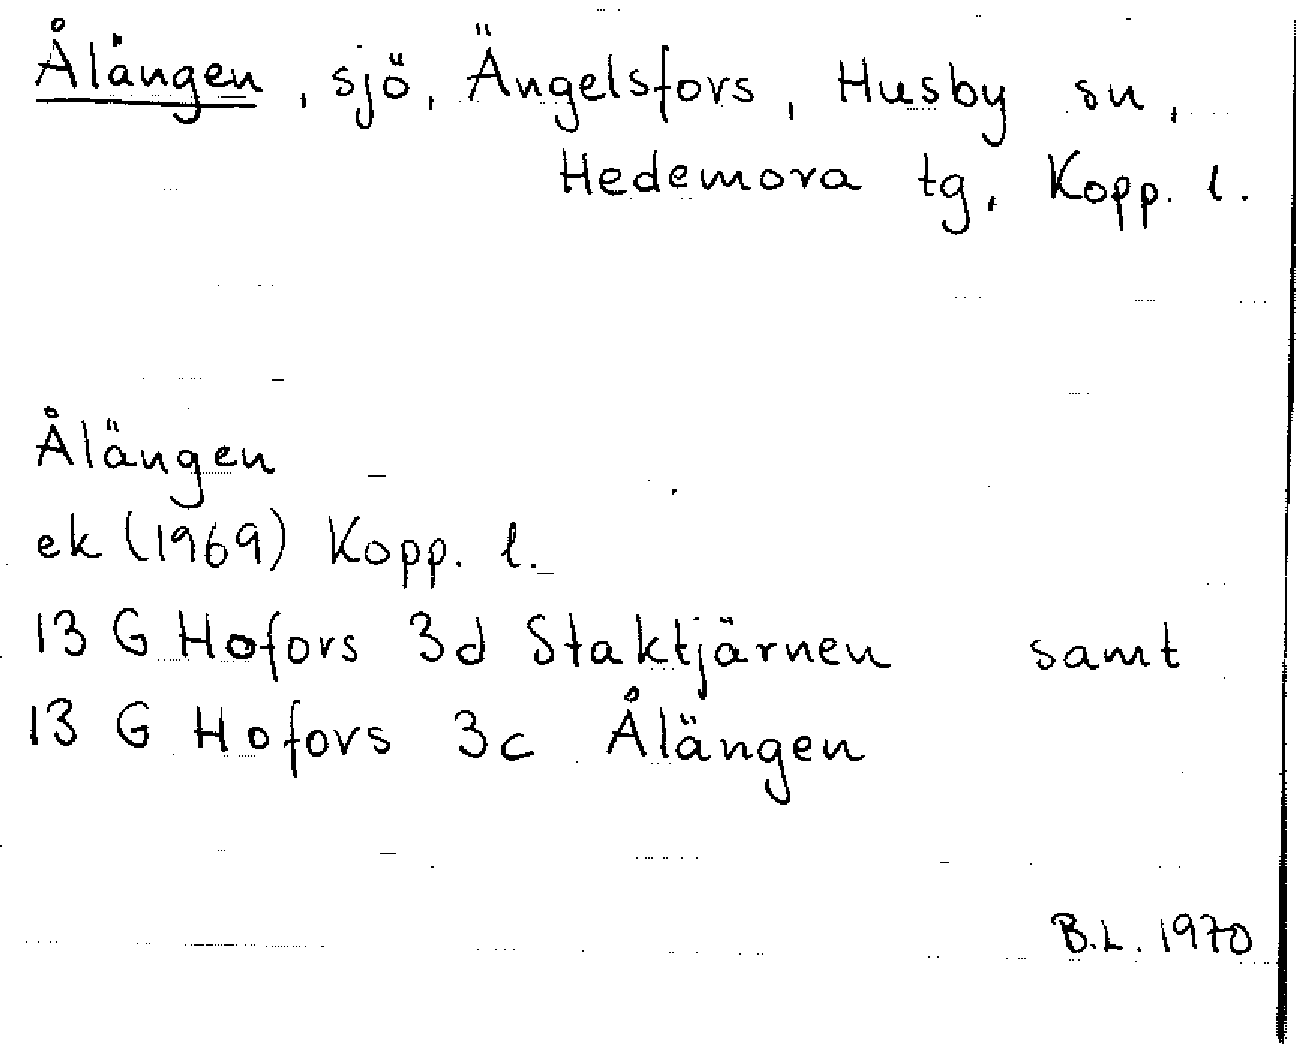 Ålängen, sjö, Ängelsfors, Husby sn,
Hedemora tg, Kopp. l.
Ålängen
ek (1969) Kopp. l.
13 G Hofors 3d Staktjärnen samt
13 G Hofors 3c Ålängen
B.L. 1970